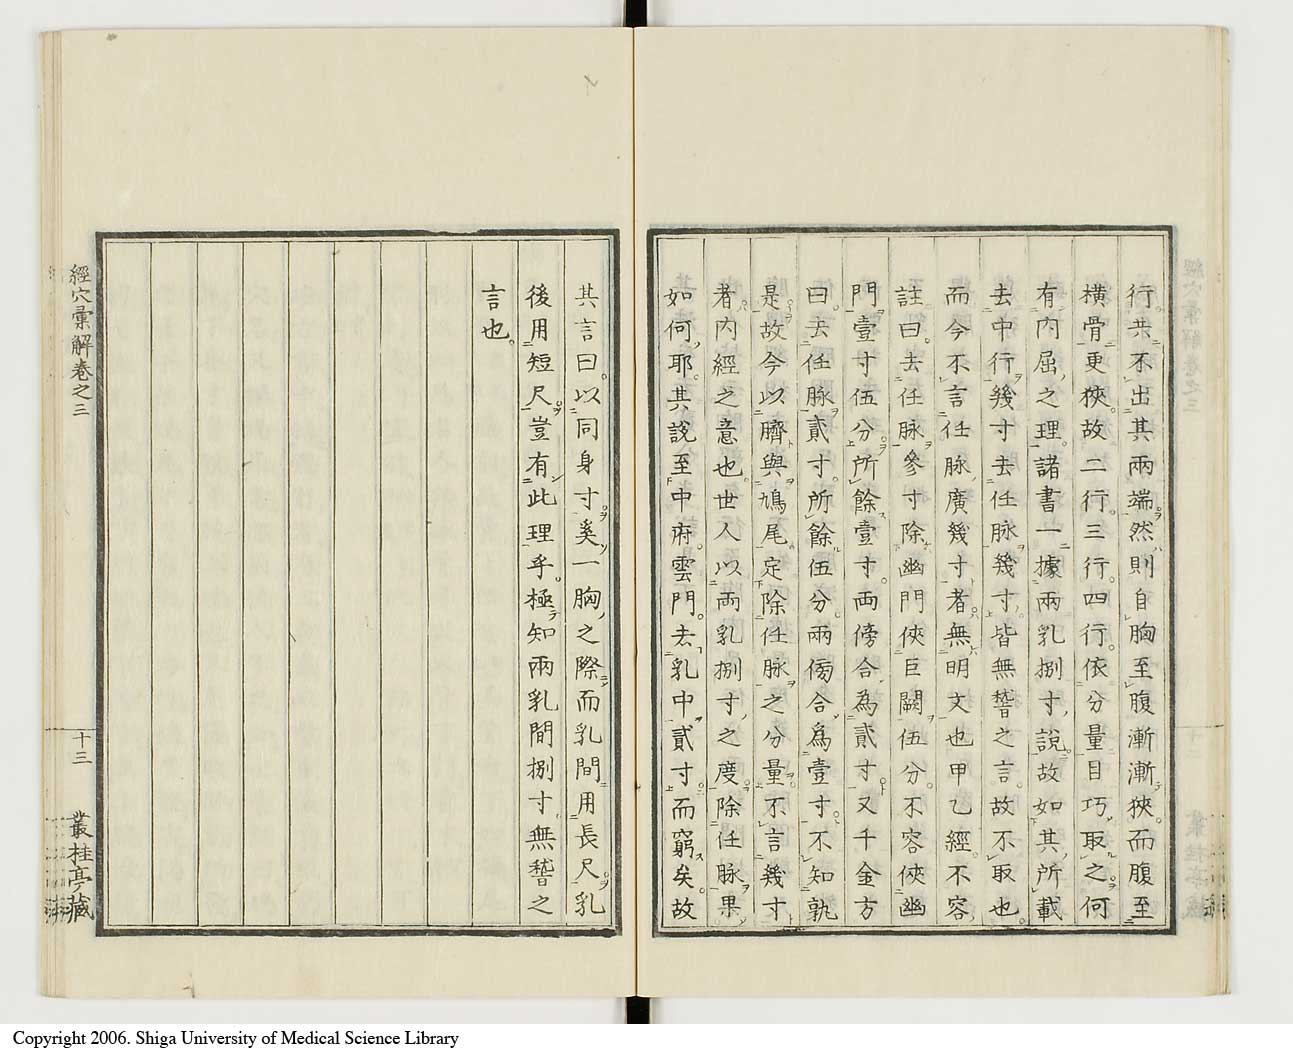 行共不出其兩端然則自胸至腹漸漸狹而腹至
橫骨更狹故二行三行四行依分量目巧取之何
有内屈之理諸書一據兩乳捌寸說故如其所載
去中行幾寸去任脉幾寸皆無諬之言故不取也
而今不言任脉廣幾寸者無明文也甲乙經不容
註曰去任脉參寸除幽門俠巨闕伍分不容俠幽
門壹寸伍分所餘壹寸兩傍合為貳寸又千金方
曰去任脉貳寸所餘伍分兩傍合為壹寸不知孰
是故今以臍與鳩尾定除任脉之分量不言幾寸
者内經之意也世人以兩乳捌寸之度除任脉果
如何耶其說至中府雲門去乳中貳寸而窮矣故
其言曰以同身寸奚一胸之際而乳間用長尺乳
後用短尺豈有此理乎極知兩乳間捌寸無諬之
言也
經穴彙解卷之三
十三
叢桂亭藏
Copyright 2006. Shiga University of Medical Science Library